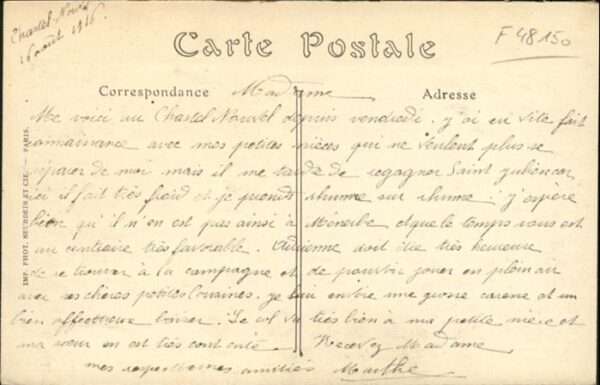 Chastel-Nouvel
16 août 1916
F 48150
Carte Postale
Correspondance
Madame
Adresse
Me voici au Chastel Nouvel depuis vendredi. j'ai eu vite fait
connaissance avec mes petites nièces qui ne veulent plus se
séparer de moi mais il me tarde de regagner Saint
ici il fait très froid et je prends rhume sur rhume. j'espère
bien qu'il n'en est pas ainsi à et que le temps vous est
au contraire très favorable. doit être très heureuse
de se trouver à la campagne et de pouvoir jouer en plein air
avec ses chères petites cousines. je lui envoie une grosse caresse et un
bien affectueux baiser. Le col va très bien à ma petite nièce et
ma sœur en est très contente. Recevez Madame
mes respectueuses amitiés Marthe
IMP. PHOT. NEURDEIN ET CIE. — PARIS.